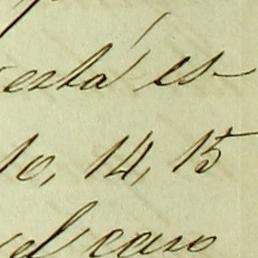 está es-
10, 14, 15
el caso